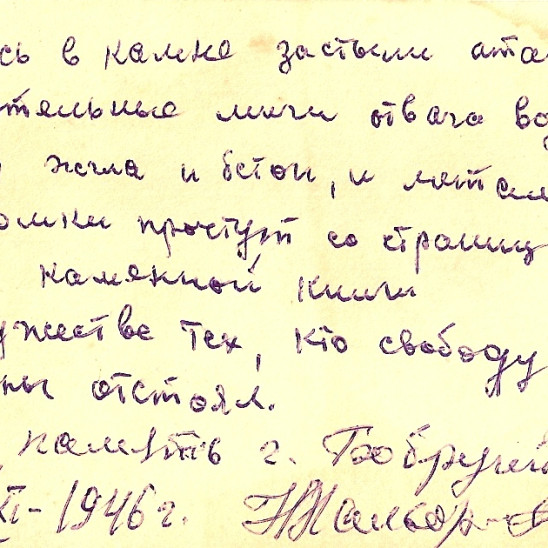 сь в камне застыли ата
тельные мечи отвага во
жгла и бетон, и метал
омки прочтут со страниц
каменной книги
ужестве тех, кто свободу
ны отстоял.
память г. Бобруй
XI-1946 г.